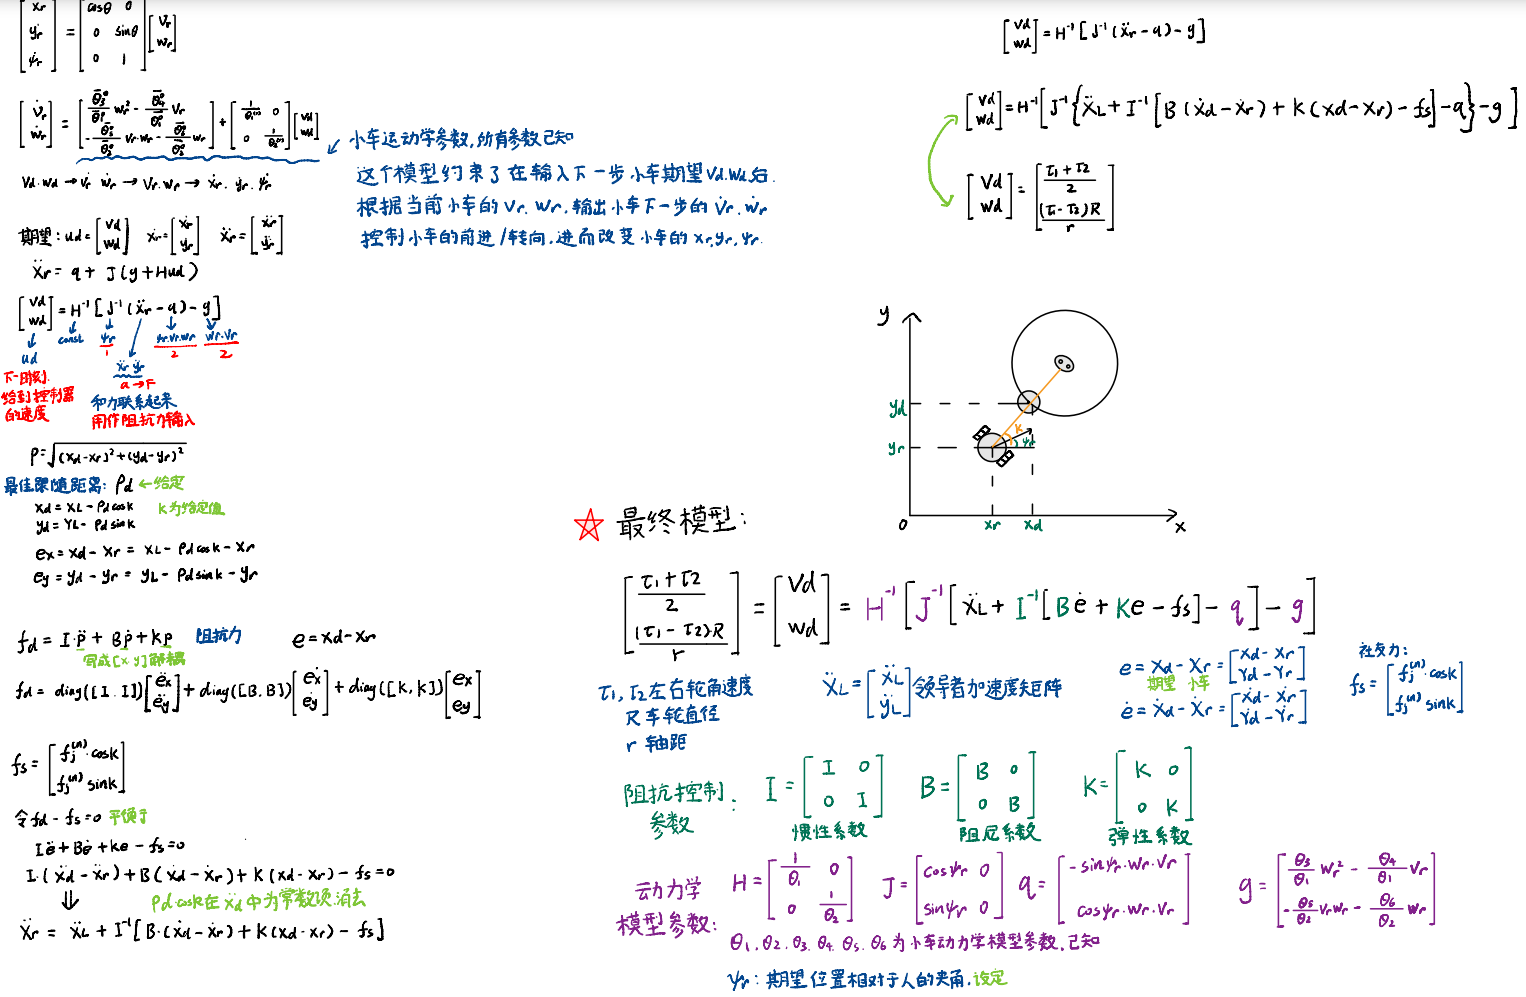 [ẋr ẏr ψ̇r] = [cosθ 0; 0 sinθ; 0 1] [Vr Wr]
[V̇r Ẇr] = [θ̄3/θ̄1 Wr² - θ̄4/θ̄1 Vr; -θ̄5/θ̄2 Vr·Wr - θ̄6/θ̄2 Wr] + [1/θ1 0; 0 1/θ2] [Vd Wd]
小车运动学参数,所有参数已知
Vd.Wd → V̇r Ẇr → Vr.Wr → ẋr. ẏr. ψ̇r
这个模型约束了在输入下一步小车期望Vd.Wd后.
根据当前小车的Vr. Wr. 输出小车下一步的V̇r. Ẇr
控制小车的前进/转向.进而改变小车的xr,yr,ψr.
期望: ud = [Vd Wd] xr = [xr yr] Ẋr = [ẋr ẏr]
Ẍr = q + J(y + Hud)
[Vd Wd] = H⁻¹ [J⁻¹(Ẍr - q) - g]
ud const ψr ψr.Vr.Wr Wr.Vr
1 2 2
ẍr ÿr
a → F
下一时刻.
给到控制器
的速度
和力联系起来
用作阻抗力输入
ρ = √((xd-xr)² + (yd-yr)²)
最佳跟随距离: ρd ← 给定
xd = xL - ρd cosk k为给定值
yd = YL - ρd sink
ex = xd - xr = xL - ρd cosk - xr
ey = yd - yr = yL - ρd sink - yr
fd = I·ρ̈ + Bρ̇ + Kρ 阻抗力 e = xd - xr
写成[x y]解耦
fd = diag([I. I]) [ëx ëy] + diag([B. B]) [ėx ėy] + diag([K, K]) [ex ey]
fs = [fj⁽ⁿ⁾·cosk fj⁽ⁿ⁾sink]
令fd - fs = 0 平衡于
Ië + Bė + Ke - fs = 0
I·(ẍd - ẍr) + B(ẋd - ẋr) + K(xd - xr) - fs = 0
⇓ ρd·cosk在ẍd中为常数项.消去
Ẍr = ẍL + I⁻¹[B·(ẋd - ẋr) + K(xd - xr) - fs]
[Vd Wd] = H⁻¹ [J⁻¹(Ẍr - q) - g]
[Vd Wd] = H⁻¹ [J⁻¹{ẌL + I⁻¹[B(ẋd - ẋr) + K(xd - xr) - fs] - q} - g]
[Vd Wd] = [(τ1 + τ2)/2; (τ1 - τ2)R/r]
y
yd
yr
K
ψr
0 xr xd x
☆ 最终模型:
[(τ1 + τ2)/2; (τ1 - τ2)·R/r] = [Vd Wd] = H⁻¹ [J⁻¹ [ẌL + I⁻¹[Bė + Ke - fs] - q] - g]
τ1, τ2左右轮角速度
R 车轮直径
r 轴距
ẌL = [ẍL ÿL] 领导者加速度矩阵
e = xd - xr = [xd - xr Yd - Yr]
期望 小车
ė = Ẋd - Ẋr = [ẋd - ẋr Ẏd - Ẏr]
社交力:
fs = [fj⁽ⁿ⁾·cosk fj⁽ⁿ⁾sink]
阻抗控制参数: I = [I 0; 0 I] B = [B 0; 0 B] K = [K 0; 0 K]
惯性系数 阻尼系数 弹性系数
动力学模型参数: H = [1/θ1 0; 0 1/θ2] J = [cosψr 0; sinψr 0] q = [-sinψr·Wr·Vr; cosψr·Wr·Vr] g = [θ3/θ1 Wr² - θ4/θ1 Vr; -θ5/θ2 VrWr - θ6/θ2 Wr]
θ1.θ2.θ3.θ4.θ5.θ6为小车动力学模型参数.已知
ψr: 期望位置相对于人的夹角.设定